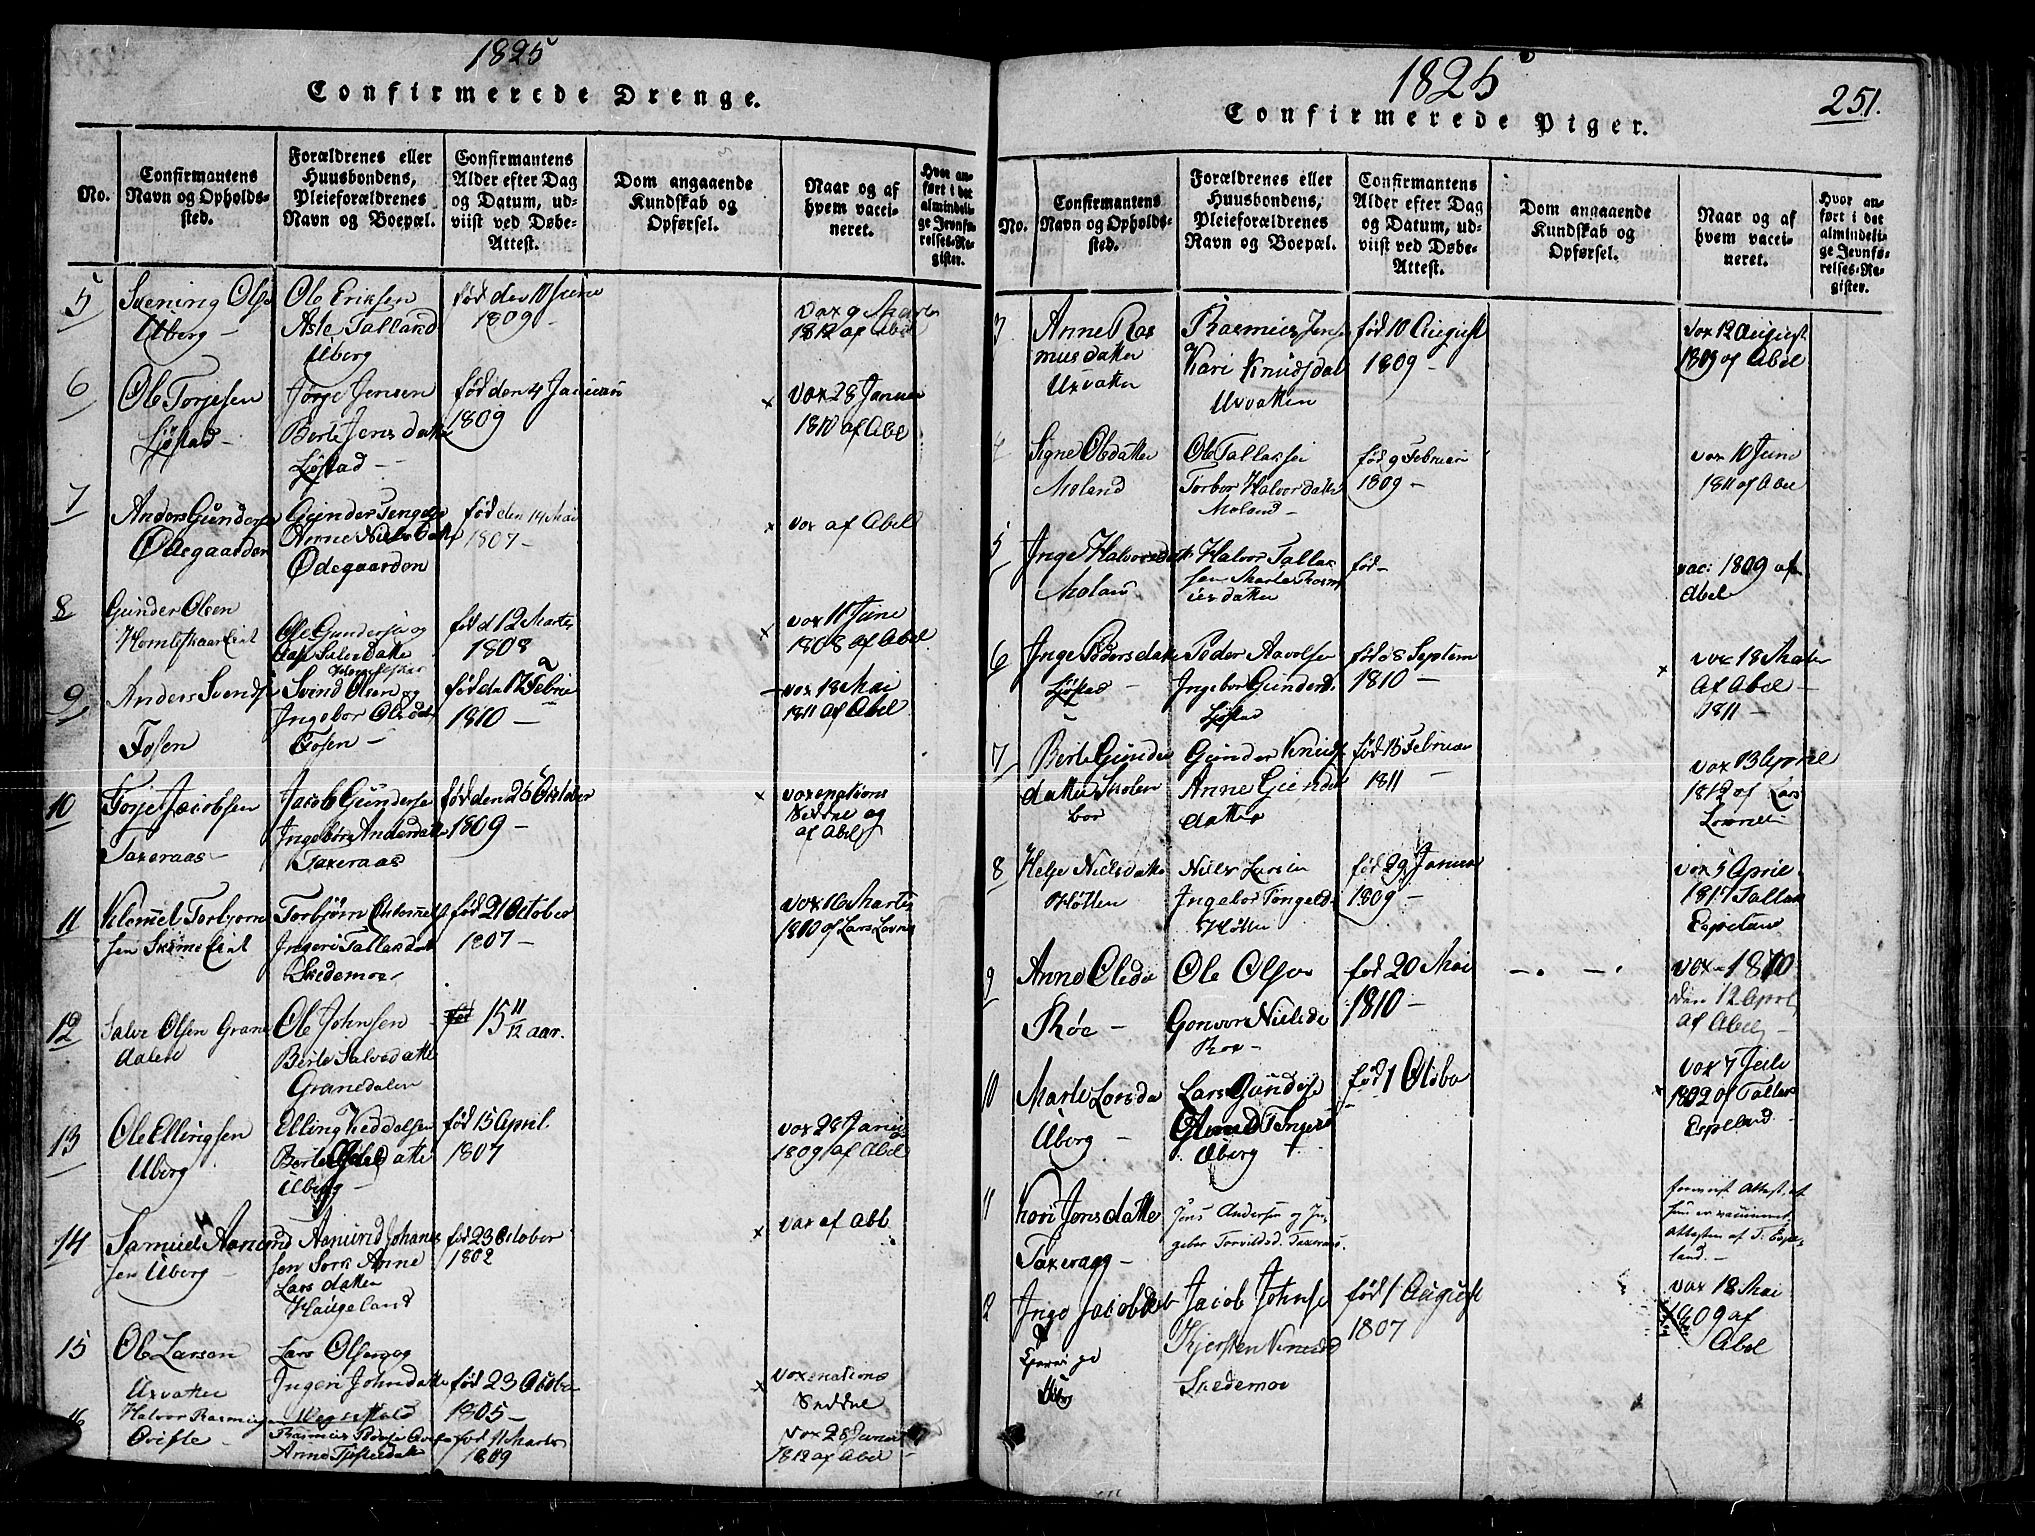 1825
Confirmerede Drenge.
No.
Confirmantens
Navn og Opholds-
sted.
Forældrenes eller
Huusbondens,
Pleieforældrenes
Navn og Boepæl.
Confirmantens
Alder efter Dag
og Datum, ud-
viist ved Døbe-
Attest.
Dom angaaende
Kundskab og
Opførsel.
Naar og af
hvem vacci-
neret.
Hvor an-
ført i det
almindeli-
ge Jevnfø-
relses-Re-
gister.
5
Olsen
Uberg -
Ole Eriksen
Talland
Uberg
fød den 10 June
1809 -
vax 9 Marts
1812 af Abel
6
Ole Torjesen
Ljøstad -
Jensen
Berte Jensdatte
Ljøstad -
fød den 4 Januari
1809
x
vax 28 Januar
1810 af Abel
7
Anders Gunders
Ødegaarden
Gunder
Niels
Ødegaarden
fød den 14 Mai
1807 -
x
vax af Abel
8
Gunder Olsen
Ole Gunders og
fød d 12 Marts
1808
x
vax 11 June
1808 af Abel
9
Anders Svends
Fosen
Svend Olsen og
Ingebor Olsdat
Fosen -
fød d 12 Febru
1810 -
vax 18 Mai
1811 af Abel
10
Torje Jacobsen
Taxeraas -
Jacob Gunderse
Ingebor Andersdatte
Taxeraas
fød den 26 October
1809 -
x
vaxenations
Seddle og
af Abel
11
Klemet Torbjorn
sen
Torbjørn
Ingeri Tallasdat
Skedemoe
fød 21 October
1807 -
vax 16 Marts
1810 af Lars
12
Salve Olsen Grane
dalen
Ole Johnsen
Berte Salvesdatte
Granedalen
fød 15 11/12 aar.
13
Ole Ellingsen
Uberg
Elling
Berte
Uberg -
fød 15 April
1807
vax 28 Janua
1809 af Abel
14
Samuel Aanund
sen Uberg -
Aanund Johanes
sen Anne
Lars datter
Haugeland
fød 23 October
1802
x
vax af Abl
15
Ole Larsen
Uxvatten
Lars Olsen og
Ingeri Johndatte
fød 23 Octobe
1805 -
x
vaxenations
Seddle
16
Halvor Rasmusen
Rasmus
Anne
fød 11 Marts
1809
vax 28 Januar
1812 af Abel -
1825
251.
Confirmerede Piger.
No.
Confirmantens
Navn og Opholds-
sted.
Forældrenes eller
Huusbondens,
Pleieforældrenes
Navn og Boepæl.
Confirmantens
Alder efter Dag
og Datum, ud-
viist ved Døbe-
Attest.
Dom angaaende
Kundskab og
Opførsel.
Naar og af
hvem vacci-
neret.
Hvor an-
ført i det
almindeli-
ge Jevnfø-
relses-Re-
gister.
3
Anne Ras
musdatter
Uxvatten
Rasmus Jens
Kari Knudsdat
Uxvatten
fød 10 August
1809 -
vax 12 August
1809 af Abel
4
Signe Olsdatter
Moland
Ole Tallaksen
Torbor Halvordatte
Moland -
fød 9 Februari
1809 -
vax 10 Juni
1811 af Abel
5
Inge Halvorsdatt
Moland
Halvor Tallak
sen Marte Rasm
usdatter
fød -
vac: 1809 af
Abel
6
Inge Pedersdatte
Ljøstad -
Peder Aavolsen
Ingebor Gunders
Ljøstad
fød 8 Septem
1810 -
x
vax 18 Mai
Af Abel -
1811 -
7
Berte Gunder
datter
Gunder Knuds
Anne Gunder
datter
fød 15 Februar
1811 -
vax 13 April
1812 af Lars
8
Helje Nielsdatte
Høtten
Niels Larsen
Ingebor
Høtten
fød 29 Januar
1809 -
vax 5 April
1817 Tallak
Espeland
9
Anne Olsda
Røe -
Ole Olsen
Gonvor Nielsda
fød 20 Mai
1810 -
vax - 1810
den 12 April
af Abel
10
Marte Larsda
Uberg -
Lars Gunders
Uberg +
fød 1 Octobe
x
vax 7 Juli
1802 af Tallak
Espeland.
11
Kari Jensdatte
Taxeragg -
Jens Andersen og In-
gebor Torvildsd. Taxeraas.
foreviist Attest, at
hun er vaccineret
Attesten af T. Espe-
land. -
12
Inge Jacobsdat
Jacob Johnse
Kjersten
Skedemoe
fød 1 August
1807
vax 18 Mai
1809 af
Abel